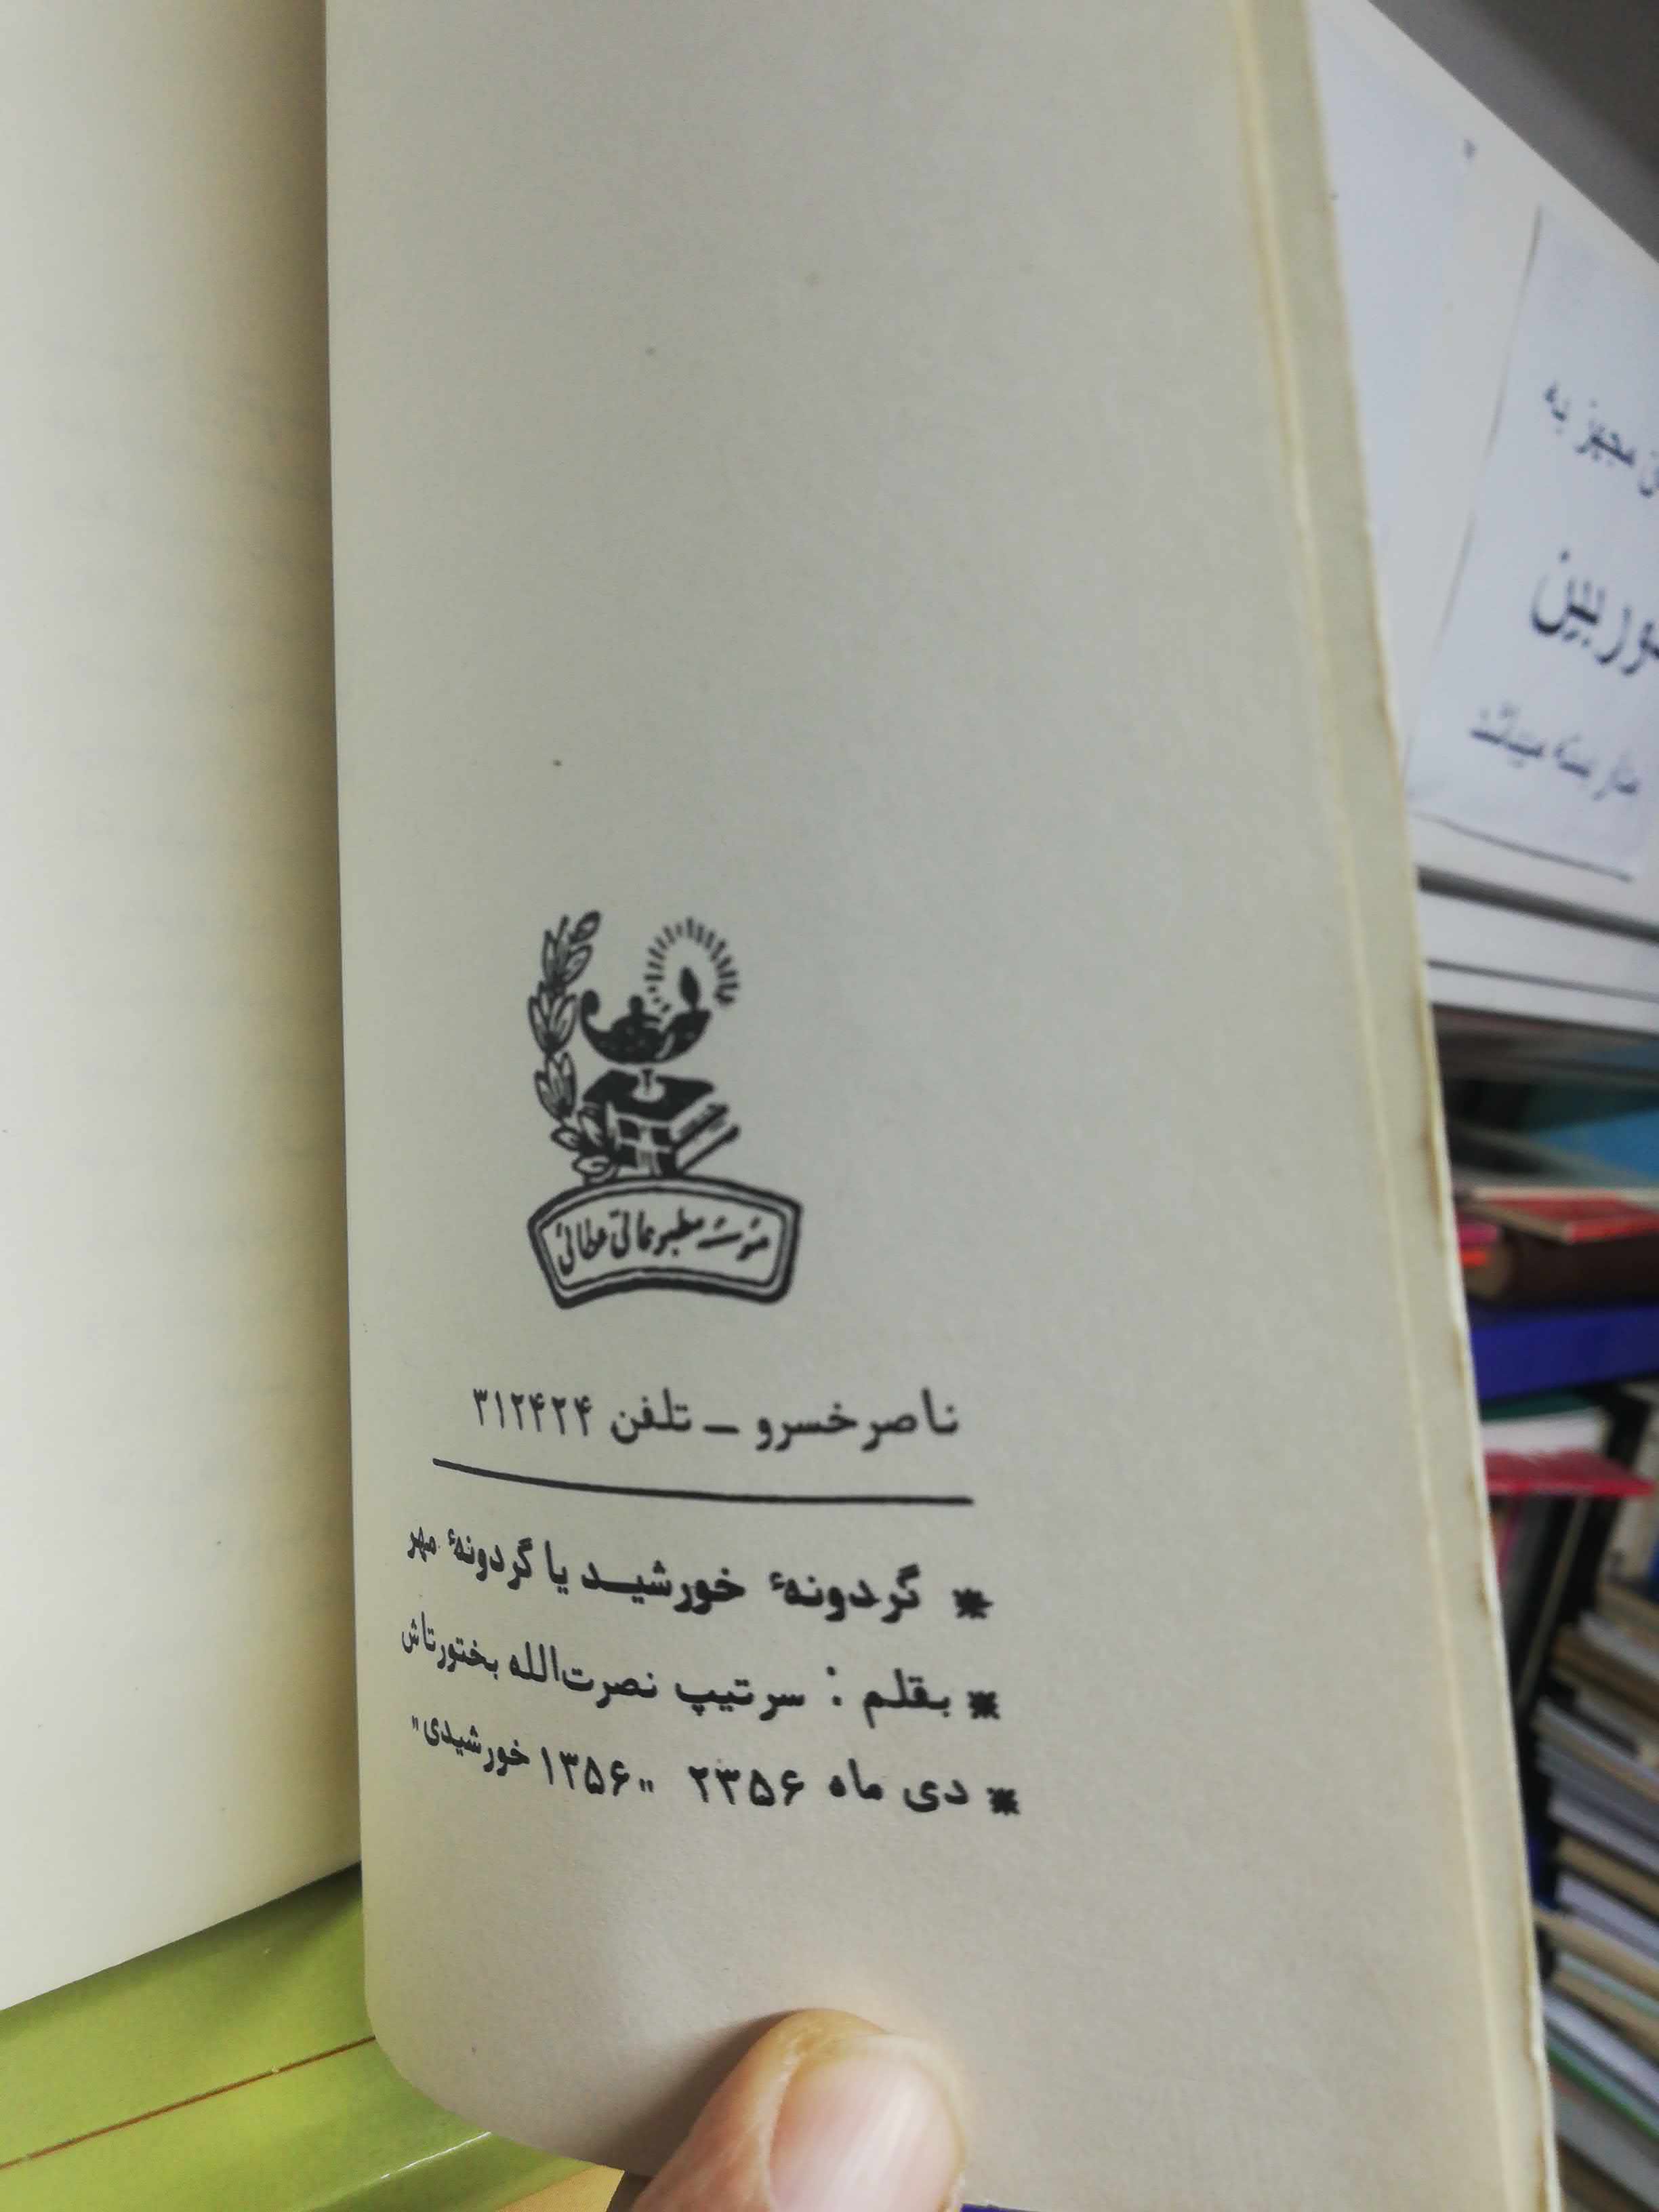 مؤسسه مطبوعاتی عطائی
ناصرخسرو ــ تلفن ۳۱۲۴۲۴
* گردونهٔ خورشید یا گردونهٔ مهر
* بقلم : سرتیپ نصرت‌الله بختورتاش
* دی ماه ۲۳۵۶ "۱۳۵۶ خورشیدی"
مجیز به
وربین
بسته میباشد